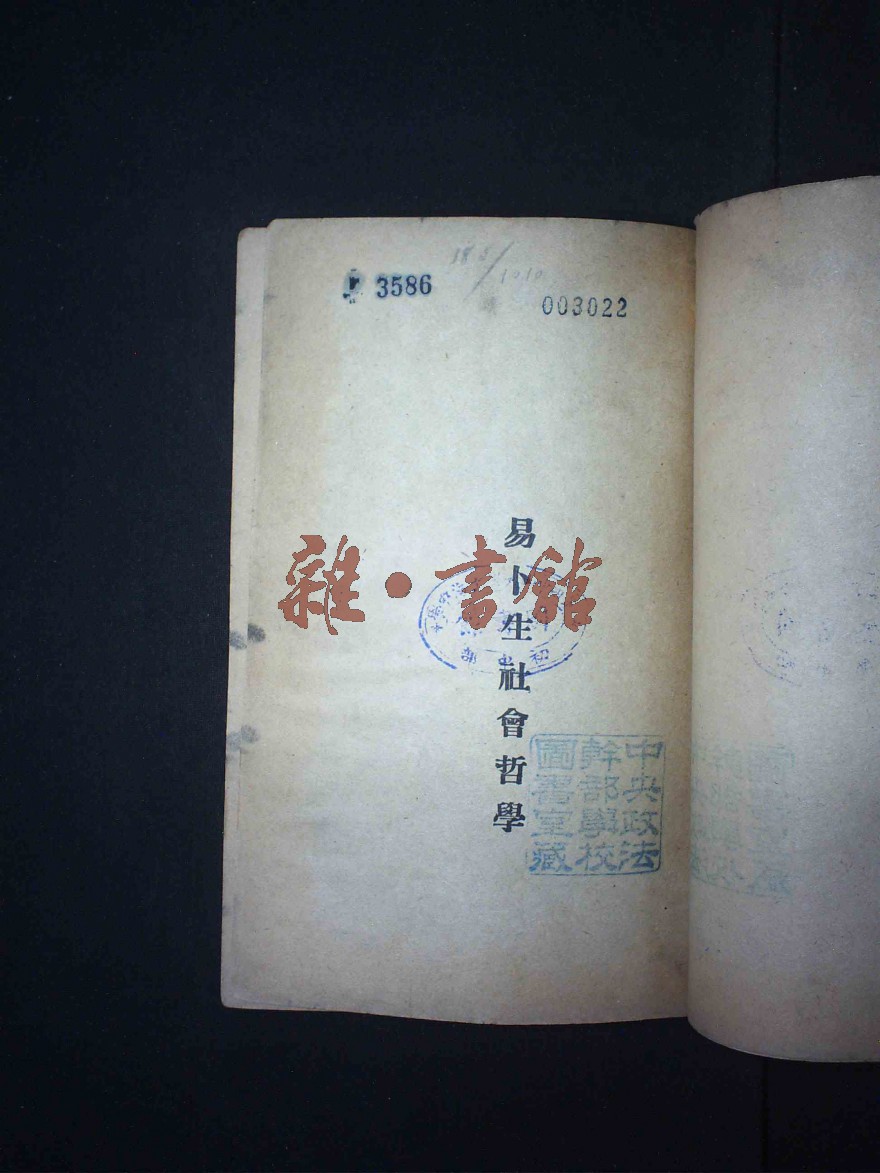 3586
003022
易卜生社會哲學
雜·書館
中央政法
幹部學校
圖書室藏